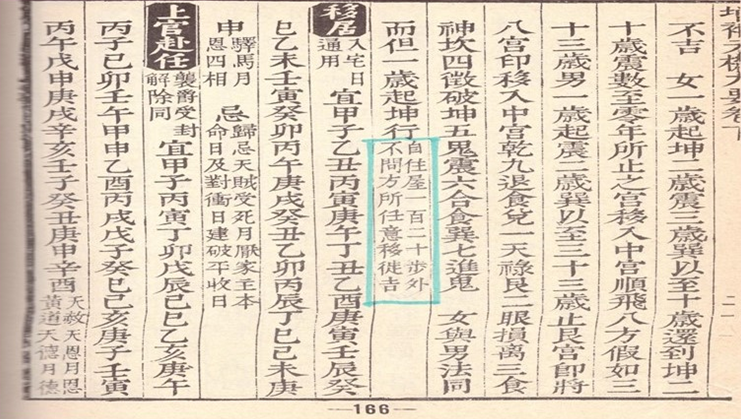 增補天機大要卷下
不吉 女一歲起坤二歲震三歲巽以至十歲還到坤二
十歲震數至零年所止之宮移入中宮順飛八方假如三
十三歲男一歲起震二歲巽以至三十三歲止艮宮即將
八宮印移入中宮乾九退食兌一天祿艮二眼損離三食
神坎四徵破坤五鬼震六合食巽七進鬼 女與男法同
而但一歲起坤行 自住屋一百二十步外
不問方所任意移徙吉
移居 入宅日
通用 宜甲子乙丑丙寅庚午丁丑乙酉庚寅壬辰癸
巳乙未壬寅癸卯丙午庚戌癸丑乙卯丙辰丁巳己未庚
申 驛馬月
恩四相 忌 歸忌天賊受死月厭家主本
命日及對衝日建破平收日
上官赴任 襲爵受封
解除同 宜甲子丙寅丁卯戊辰己巳乙亥庚午
丙子己卯壬午甲申乙酉丙戌戊子癸巳己亥庚子壬寅
丙午戊申庚戌辛亥壬子癸丑庚申辛酉 天赦天恩月恩
黃道天德月德
166